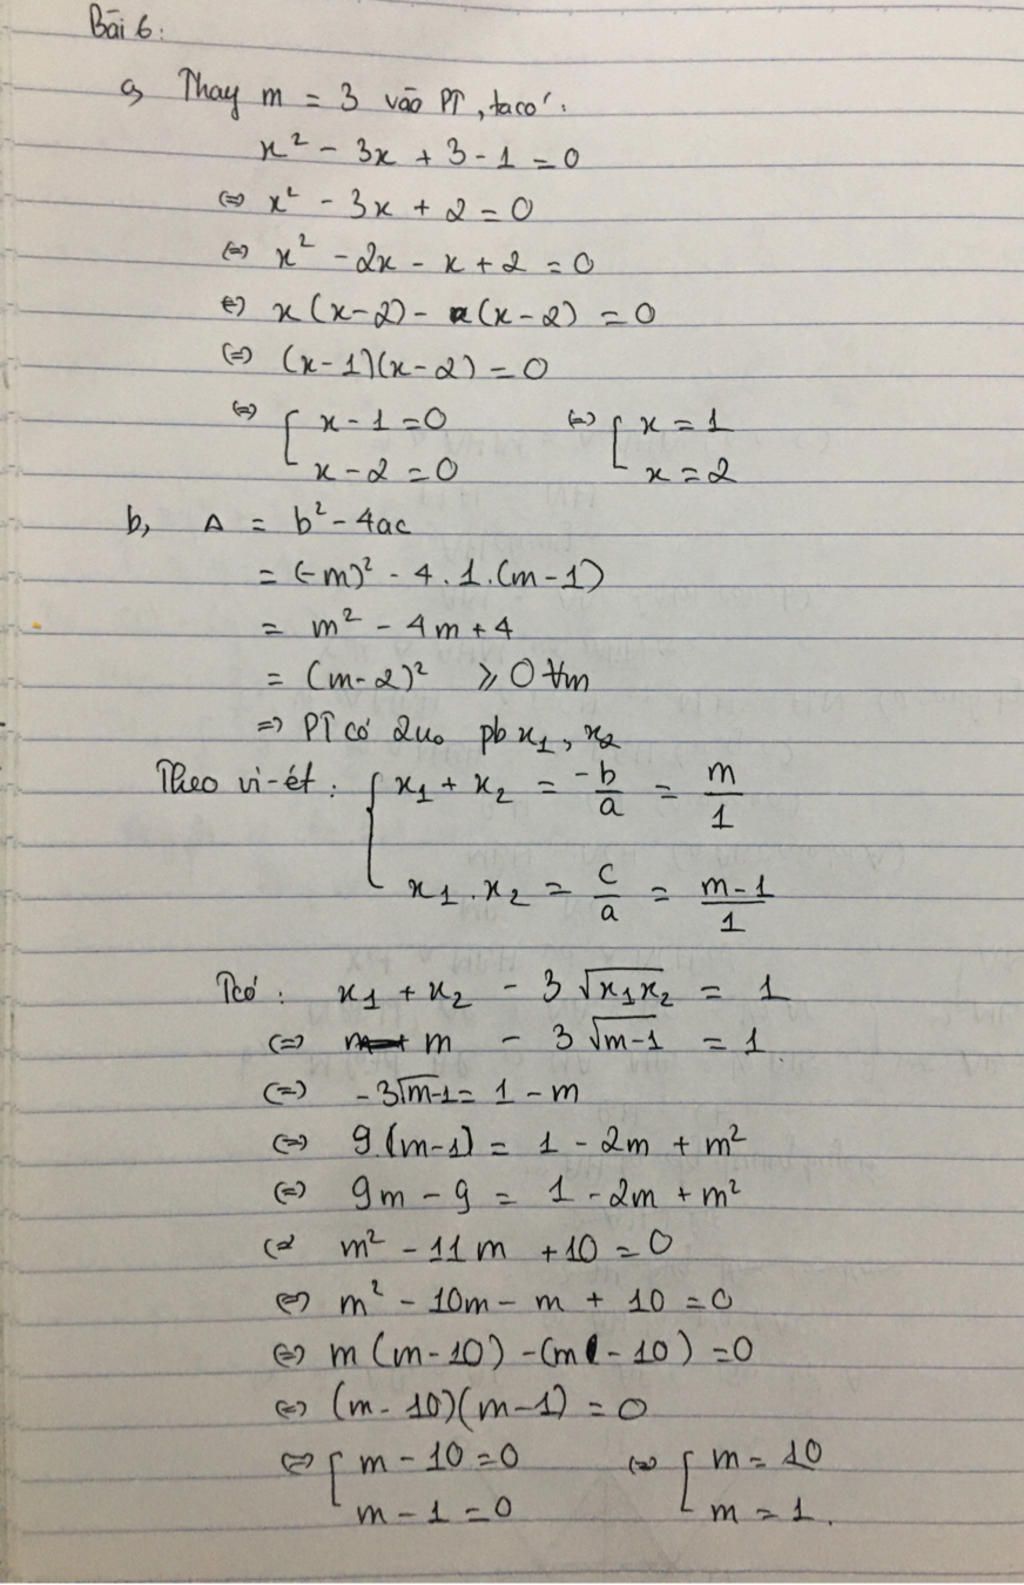 Bài 6:
a, Thay m = 3 vào PT, ta có:
x² - 3x + 3 - 1 = 0
⇔ x² - 3x + 2 = 0
⇔ x² - 2x - x + 2 = 0
⇔ x(x-2) - (x-2) = 0
⇔ (x-1)(x-2) = 0
⇔ [ x - 1 = 0 ⇔ [ x = 1
x - 2 = 0 x = 2
b, Δ = b² - 4ac
= (-m)² - 4.1.(m-1)
= m² - 4m + 4
= (m-2)² ⩾ 0 ∀m
=> PT có 2 no pb x₁, x₂
Theo vi-ét: { x₁ + x₂ = -b/a = m/1
x₁.x₂ = c/a = m-1/1
Tcó: x₁ + x₂ - 3√x₁x₂ = 1
⇔ m - 3√m-1 = 1
⇔ -3√m-1 = 1 - m
⇔ 9.(m-1) = 1 - 2m + m²
⇔ 9m - 9 = 1 - 2m + m²
⇔ m² - 11m + 10 = 0
⇔ m² - 10m - m + 10 = 0
⇔ m(m-10) - (m - 10) = 0
⇔ (m-10)(m-1) = 0
⇔ [ m - 10 = 0 ⇔ [ m = 10
m - 1 = 0 m = 1.